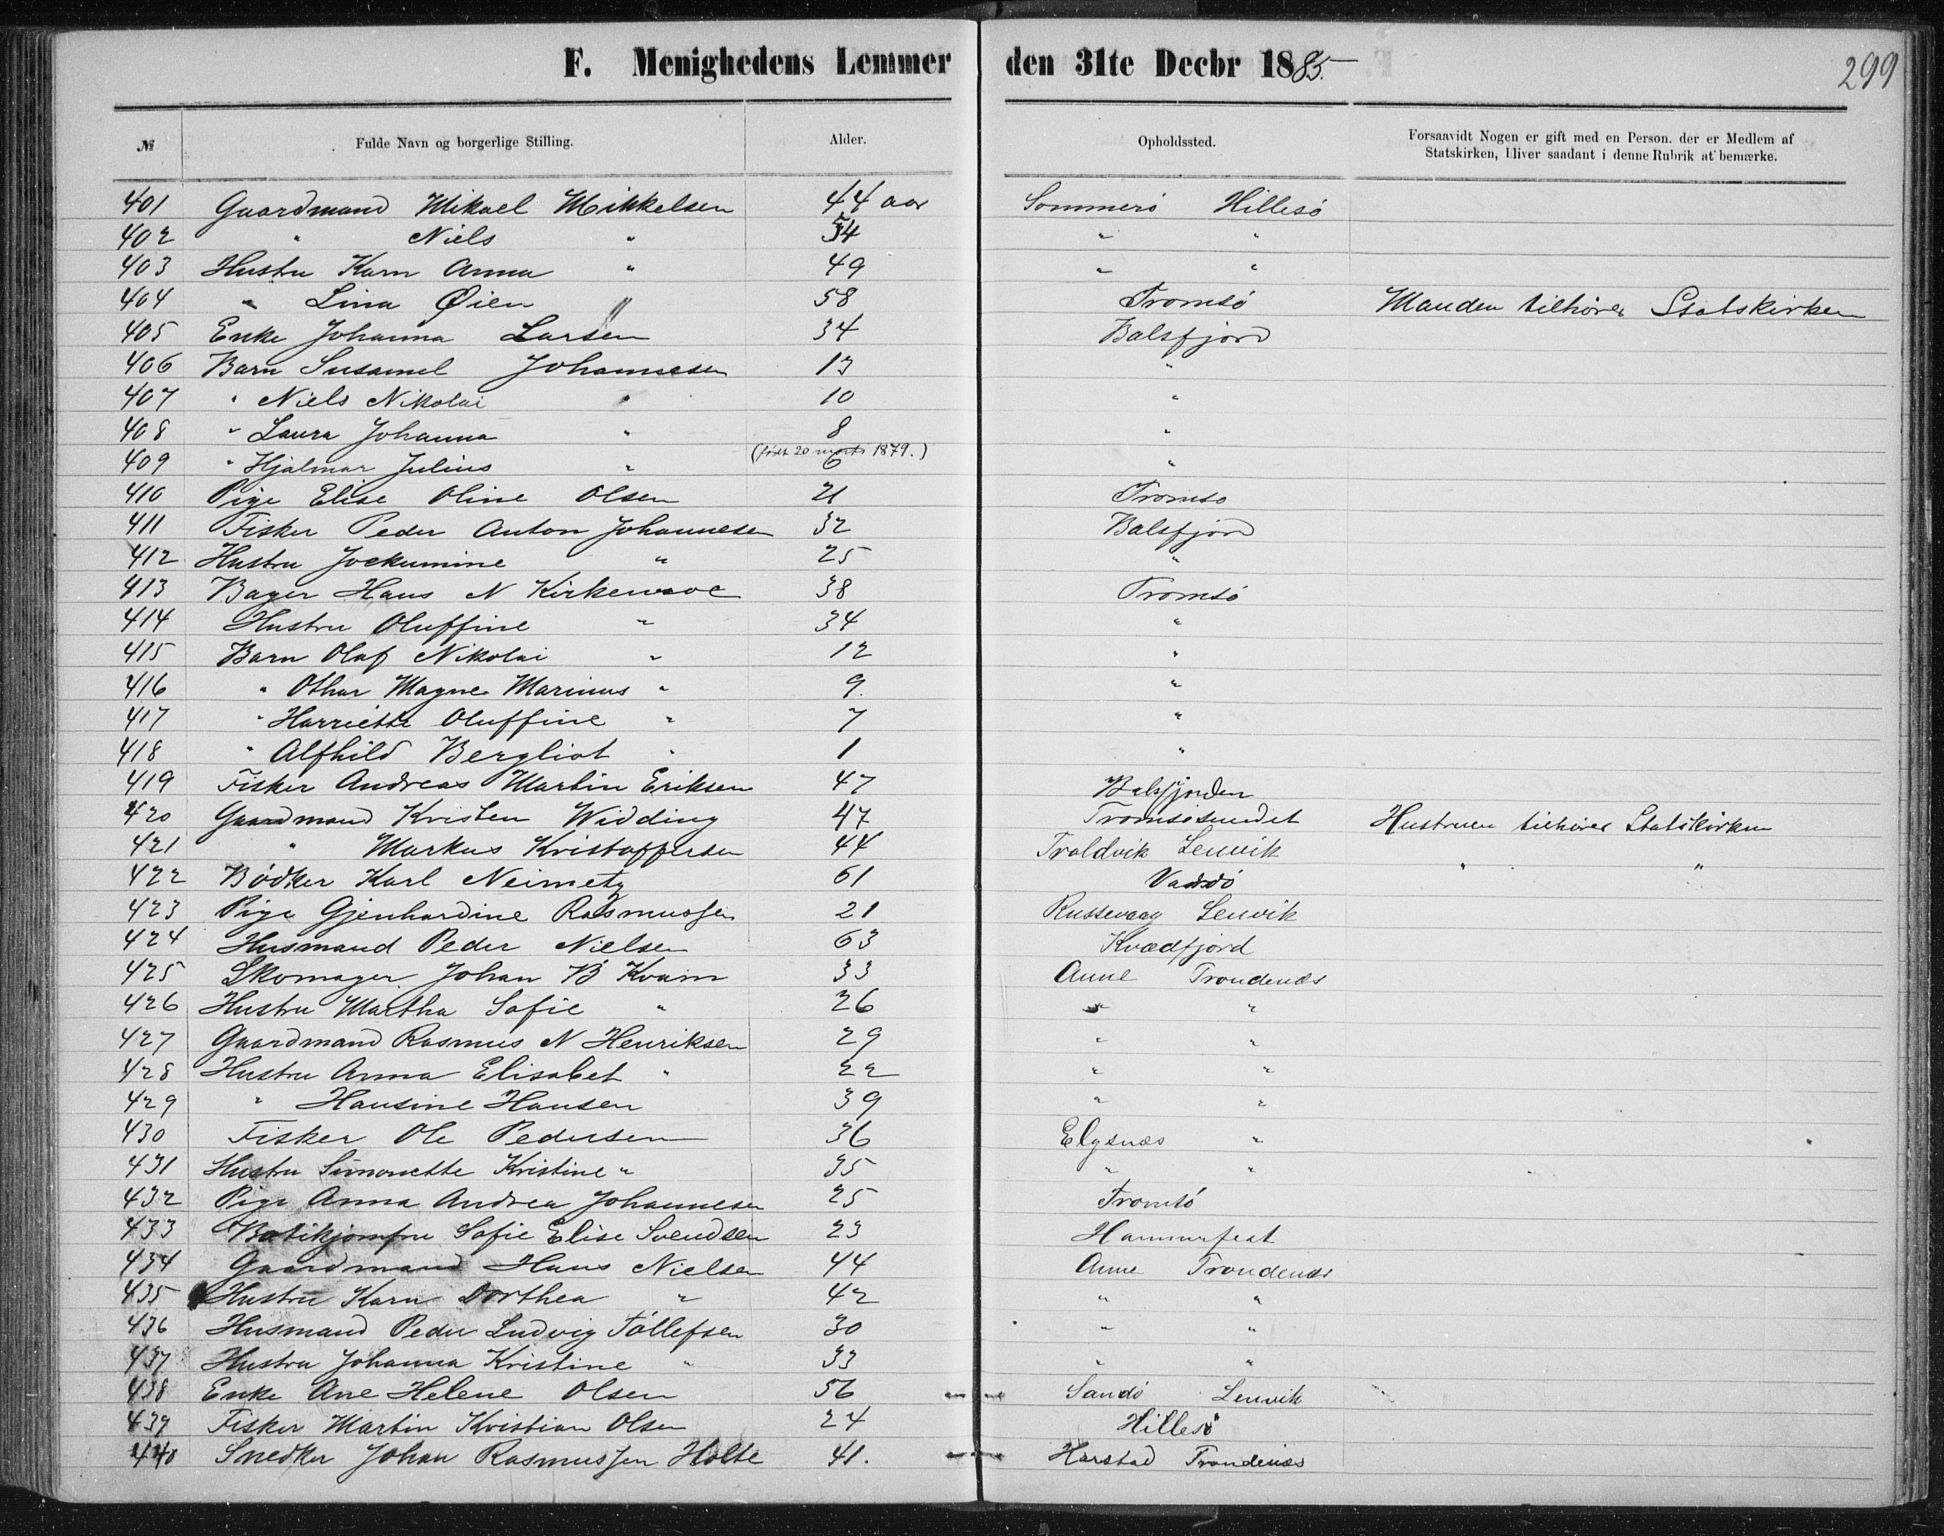 F. Menighedens Lemmer den 31te Decbr 1885.
299
№ Fulde Navn og borgerlige Stilling. Alder. Opholdssted. Forsaavidt Nogen er gift med en Person, der er Medlem af
Statskirken, bliver saadant i denne Rubrik at bemærke.
401 Gaardmand Mikael Mikkelsen 44 aar Sommerø Hillesø
402 " Niels " 54 " "
403 Hustru Karn Anna " 49 " "
404 " Lina Øien " 58 Tromsø Manden tilhører Statskirken
405 Enke Johanna Larsen 34 Balsfjord
406 Barn Susamel Johannesen 13 "
407 " Niels Nikolai " 10 "
408 " Laura Johanna " 8 "
(født 20 marts 1879.)
409 " Hjalmar Julius " 6 "
410 Pige Elise Oline Olsen 21 Tromsø
411 Fisker Peder Anton Johannesen 32 Balsfjord
412 Hustru Jockumine " 25 "
413 Bager Hans N 38 Tromsø
414 Hustru Oluffine " 34 "
415 Barn Olaf Nikolai " 12 "
416 " Othar Magne Marinus " 9. "
417 " Harriette Oluffine " 7 "
418 " Alfhild Bergliot " 1 "
419 Fisker Andreas Martin Eriksen 47 Balsfjorden
420 Gaardmand Kristen Widding 47 Tromsøsundet Hustruen tilhører Statskirken
421 " Markus Kristoffersen 44 Troldvik Lenvik
422 Bødker Karl Neimetz 61 Vadsø " "
423 Pige Gjenhardine Rasmussen 21 Russevaag Lenvik
424 Husmand Peder Nielsen 63 Kvædfjord
425 Skomager Johan B Kvam 33 Aune Trondenæs
426 Hustru Martha Sofie " 26 " "
427 Gaardmand Rasmus N Henriksen 29 " "
428 Hustru Anna Elisabet " 22 " "
429 " Hansine Hansen 39 " "
430 Fisker Ole Pedersen 36 Elgsnæs "
431 Hustru Simonette Kristine " 35 " "
432 Pige Anna Andrea Johannesen 25 Tromsø
433 Butikjomfru Sofie Elise Svendsen 23 Hammerfest
434 Gaardmand Hans Nielsen 44 Aune Trondenæs
435 Hustru Karn Dorthea " 42 " "
436 Husmand Peder Ludvig Tøllefsen 30 " "
437 Hustru Johanna Kristine " 33 " "
438 Enke Ane Helene Olsen 56 Sandø Lenvik
439 Fisker Martin Kristian Olsen 24 Hillesø
440 Snedker Johan Rasmussen Holte 41. Harstad Trondenæs